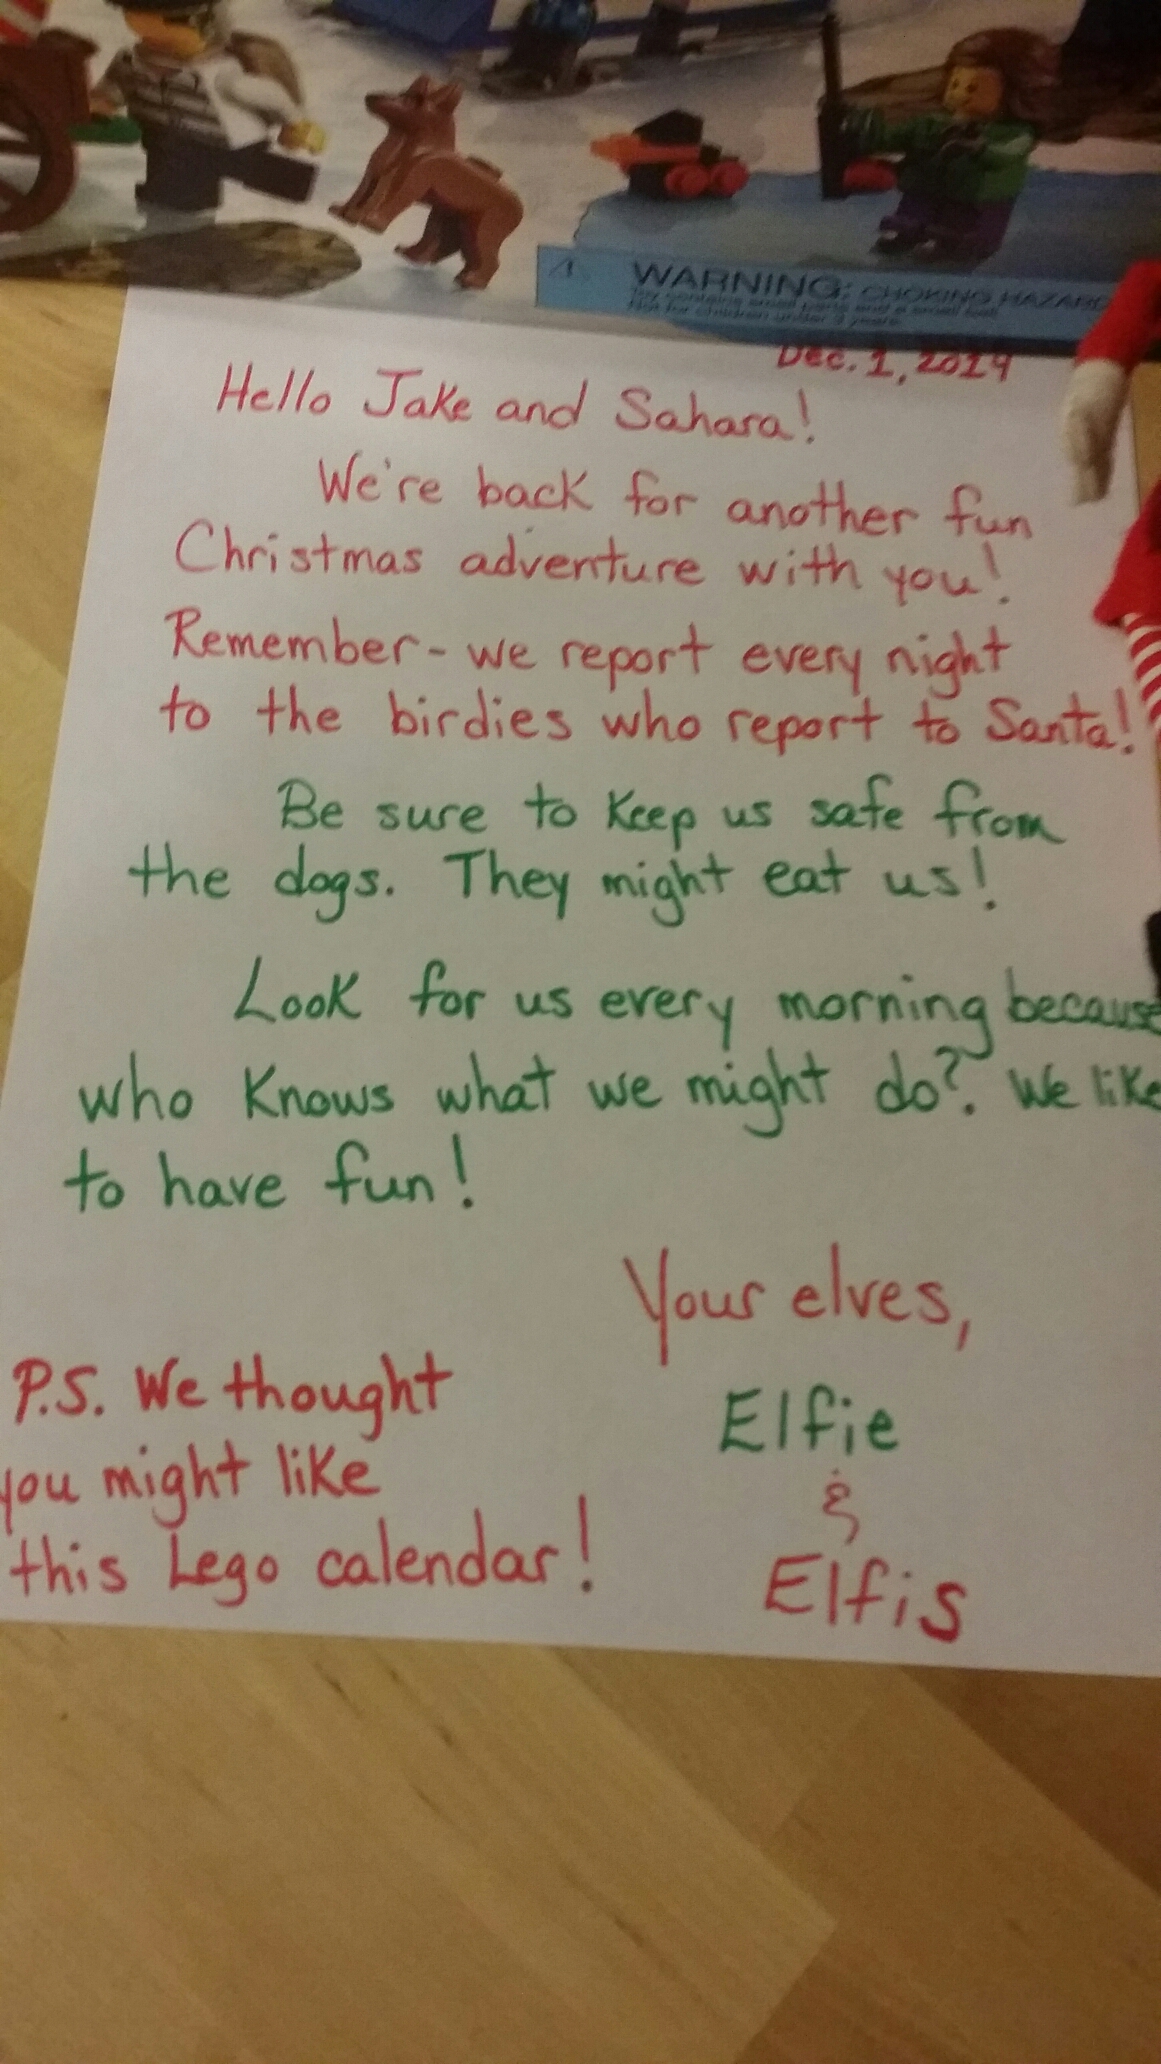 WARNING: CHOKING HAZARD
Dec. 1, 2014
Hello Jake and Sahara!
We're back for another fun
Christmas adventure with you!
Remember - we report every night
to the birdies who report to Santa!
Be sure to keep us safe from
the dogs. They might eat us!
Look for us every morning because
who knows what we might do? We like
to have fun!
Your elves,
Elfie
&
Elfis
P.S. We thought
you might like
this Lego calendar!